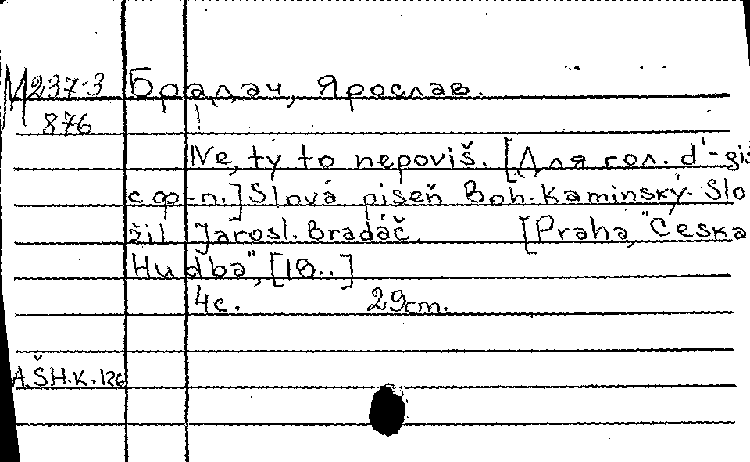 М 237-3 Брадач, Ярослав.
876
Ne, ty to nepoviš. [Для гол. d'-gis
с ф-п.] Slová pisеň Boh. Kaminský. Slo
žil Jarosl. Bradáč. [Praha, "Česka
Hudba", [18..]
4с. 29cm.
A.ŠH.K.126